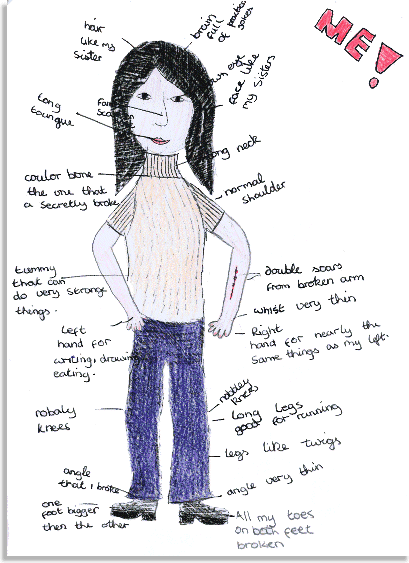 ME!
hair
like my
sister
brain
full
of
jokes
face like
my sisters
long
toungue
long neck
coulor bone
the one that
a secretly broke
normal
shoulder
tummy
that can
do very strange
things.
double scars
from broken arm
whist very thin
Left
hand for
writing, drawing
eating.
Right
hand for nearly the
same things as my left.
nobaly
knees
knees
long legs
good for running
legs like twigs
angle
that i broke
angle very thin
one
foot bigger
then the other
All my toes
on both feet
broken